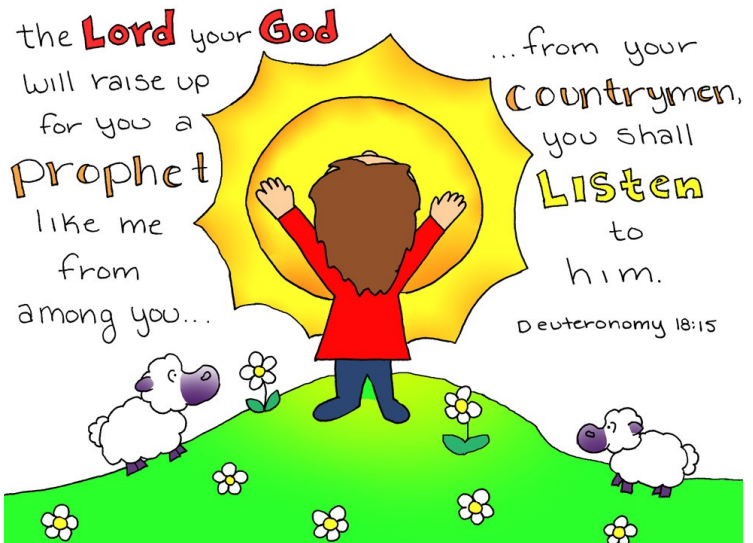 the Lord your God
will raise up
for you a
prophet
like me
from
among you...
...from your
countrymen,
you shall
Listen
to
him.
Deuteronomy 18:15